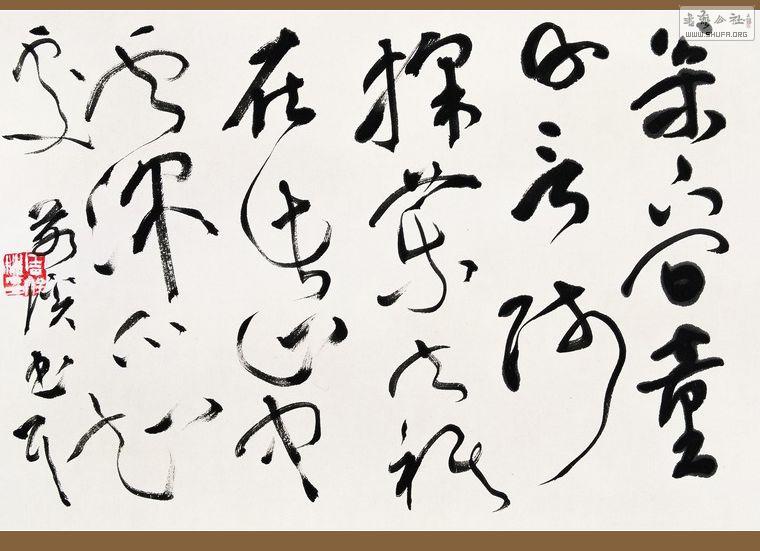 枀下問童
子言師
採藥去祇
在此山中
雲深不知
處
書
書法公社
WWW.SHUFA.ORG